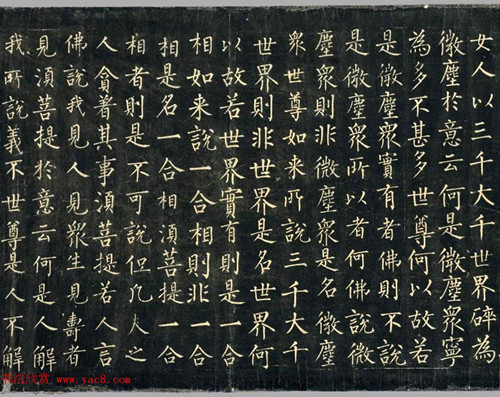 女人以三千大千世界碎為
微塵於意云何是微塵眾寧
為多不甚多世尊何以故若
是微塵眾實有者佛則不說
是微塵眾所以者何佛說微
塵眾則非微塵眾是名微塵
眾世尊如来所說三千大千
世界則非世界是名世界何
以故若世界實有則是一合
相如来說一合相則非一合
相是名一合相須菩提一合
相者則是不可說但凡夫之
人貪著其事須菩提若人言
佛說我見人見眾生見壽者
見須菩提於意云何是人解
我所說義不世尊是人不解
书法欣赏 www.yac8.com